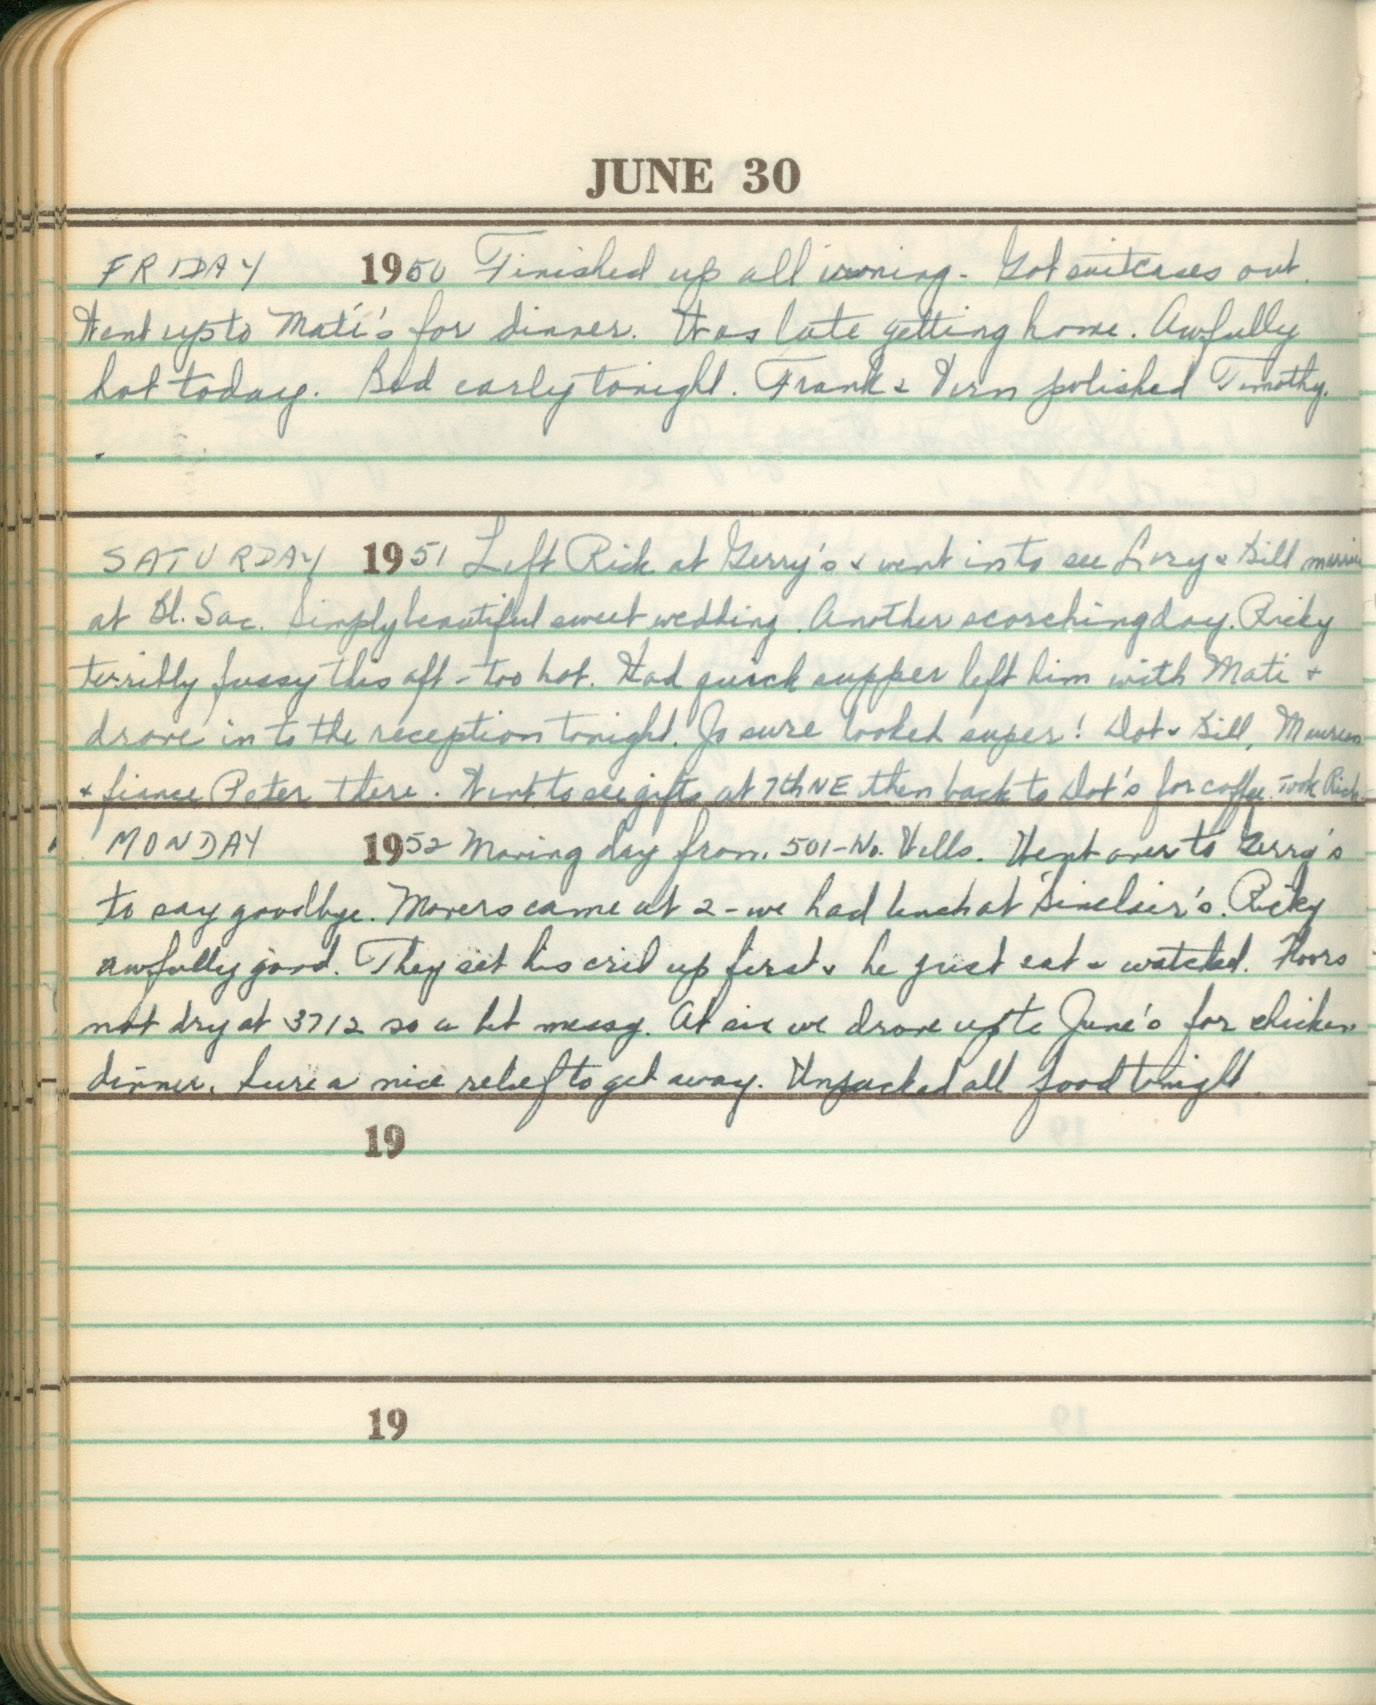 JUNE 30
FRIDAY 1950 Finished up all ironing - Got suitcases out.
Went up to Mati's for dinner. Was late getting home. Awfully
hot today. Bed early tonight. Frank & Vern polished Timothy.
SATURDAY 1951 Left Rick at Gerry's & went in to see & Bill
at Bl. Sac. Simply beautiful sweet wedding. Another scorching day. Ricky
terribly fussy this aft - too hot. Had quick supper left him with Mati +
drove in to the reception tonight. Jo sure looked super! Dot & Bill,
+ fiance Peter there. Went to see gifts at 7th NE then back to Dot's for coffee. Took Rick
MONDAY 1952 Moving day from 501-No. Wells. Went over to Gerry's
to say goodbye. Movers came at 2 - we had lunch at Sinclair's. Ricky
awfully good. They set his crib up first & he just sat & watched. Floors
not dry at 3712 so a bit messy. At six we drove up to June's for chicken
dinner. Sure a nice relief to get away. Unpacked all food tonight
19
19